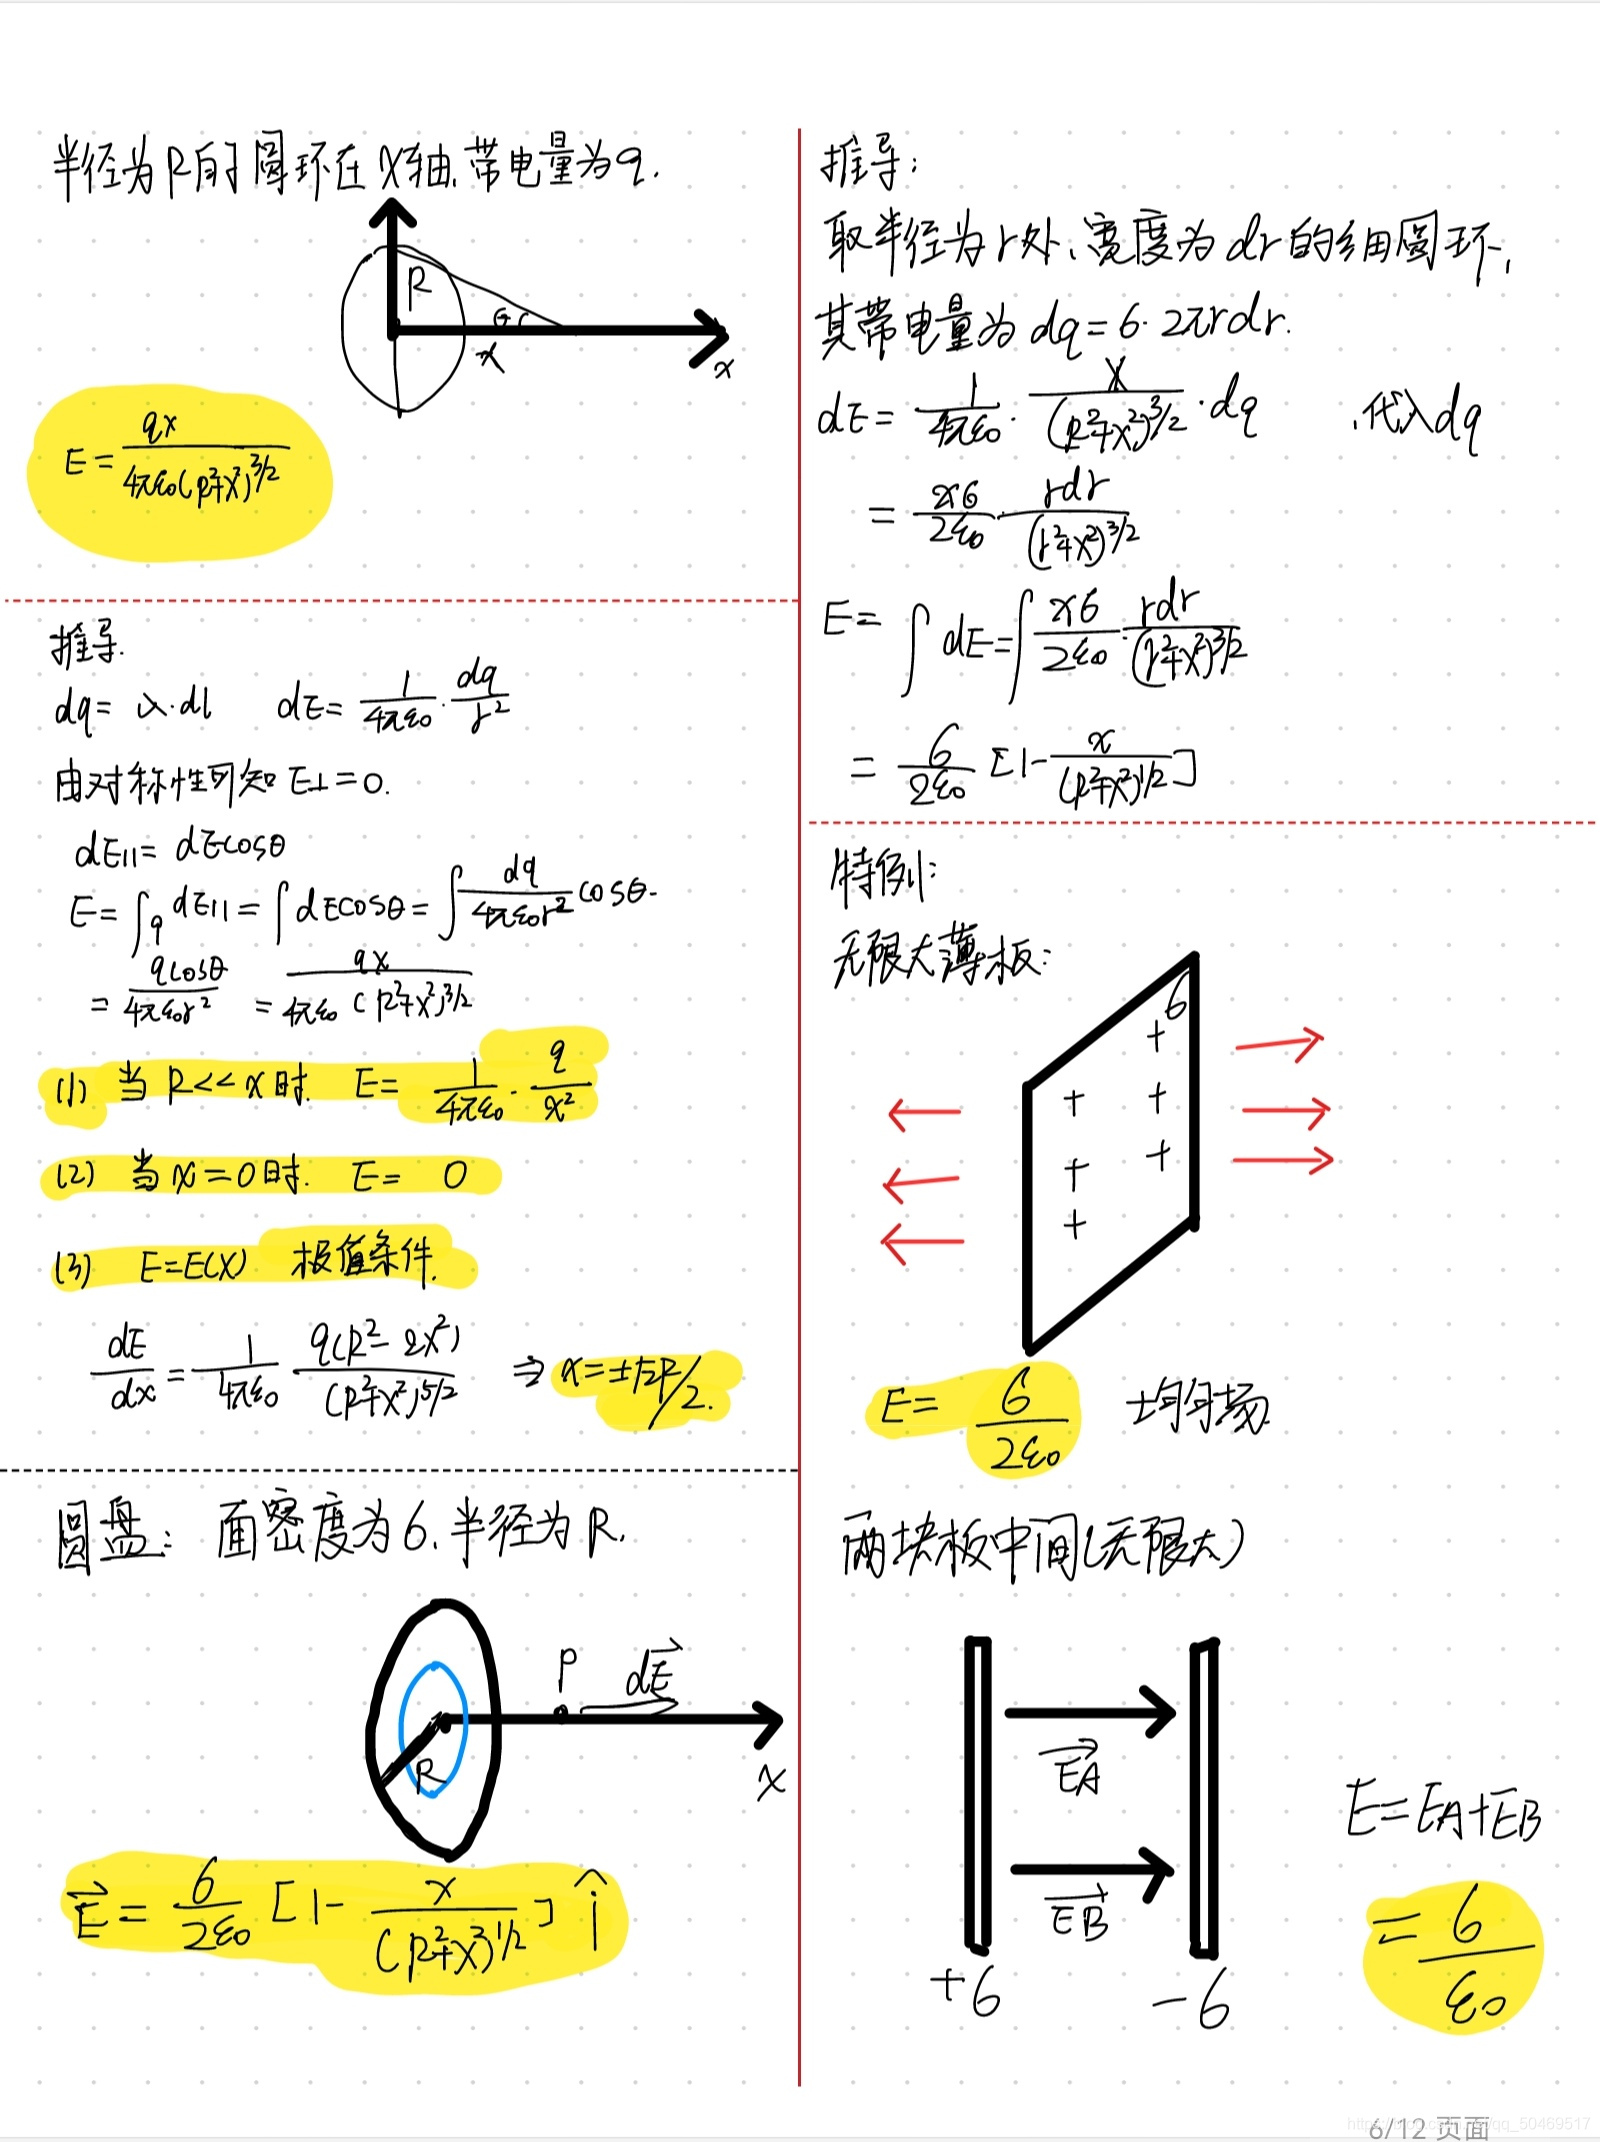 半径为R的圆环在X轴,带电量为q.
R
θ
x
x
E = qx / 4πε0(R²+x²)^3/2
推导.
dq = λ·dl dE = 1/4πε0 · dq/r²
由对称性可知 E⊥=0.
dE∥ = dEcosθ
E = ∫q dE∥ = ∫dEcosθ = ∫ dq/4πε0r² cosθ.
= qcosθ/4πε0r² = qx/4πε0 (R²+x²)^3/2
(1) 当 R<<x时. E = 1/4πε0 · q/x²
(2) 当 x=0时. E = 0
(3) E=E(X) 极值条件.
dE/dx = 1/4πε0 q(R²-2x²)/(R²+x²)^5/2 ⇒ x=±√2R/2.
圆盘: 面密度为σ.半径为R.
P
dE⃗
R
X
E⃗ = σ/2ε0 [1- x/(R²+x²)^1/2] î
推导:
取半径为r处、宽度为dr的细圆环,
其带电量为 dq=σ·2πrdr.
dE = 1/4πε0 · x/(R²+x²)^3/2 · dq ,代入dq
= xσ/2ε0 · rdr/(r²+x²)^3/2
E = ∫dE = ∫ xσ/2ε0 · rdr/(r²+x²)^3/2
= σ/2ε0 [1- x/(R²+x²)^1/2]
特例:
无限大薄板:
σ
+
+ +
+ +
+
E = σ/2ε0 均匀场
两块板中间(无限大)
EA⃗
EB⃗
E=EA+EB
= σ/ε0
+σ -σ
6/12 页面